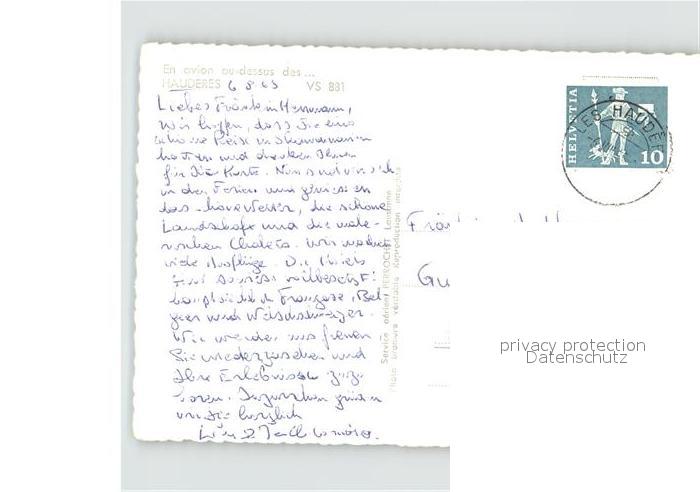 En avion au-dessus des ...
HAUDERES 6 8 65 VS 881
Liebes Fräulein Herrmann,
Wir hoffen, dass Sie eine
schöne Reise in Skandinavien
hatten und danken Ihnen
für Die Karte. Nun sind wir
in den Ferien und geniessen
das schöne Wetter, die schöne
Landschaft und die male-
rischen Chalets. Wir machen
viele Ausflüge. Die Hotels
sind vollbesetzt:
hauptsächlich Franzosen, Bel-
gier und Welschschweizer.
Wir werden uns freuen
Sie wiederzusehen und
Ihre Erlebnisse zu
hören. Inzwischen grüssen
wir Sie herzlich
Service aérien PERROCHET Lausanne
Photo bromure véritable Reproduction interdite
HELVETIA
10
LES HAUDER
Fräulein
Gu
privacy protection
Datenschutz